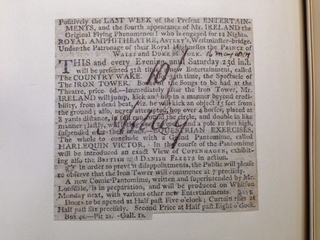 Positively the LAST WEEK of the Present ENTERTAIN-
MENTS, and the fourth appearance of Mr. IRELAND the
Original Flying Phenomenon! who is engaged for 12 Nights.
ROYAL AMPHITHEATRE, ASTLEY's, Westminster-bridge.
Under the Patronage of their Royal Highnesses the PRINCE of
WALES and DUKE of YORK.
THIS and every Evening until Saturday 23d inst.
will be presented 31st time, a new Entertainment, called
The COUNTRY WAKE. 10th time, the Spectacle of
The IRON TOWER. The Songs to be had at the
Theatre, price 6d.—Immediately after the Iron Tower, Mr.
IRELAND will jump, kick and hop in a manner beyond credi-
bility, from a dead he will kick an object 13 feet from
the ground; also, hop over a horse, placed at
yards distance, circle, and double in like
manner; lastly, a pole 10 feet high,
suspended EQUESTRIAN EXERCISES.
The whole to conclude with a Comic Pantomime, called
HARLEQUIN VICTOR. In the course of the Pantomime
will be introduced an exact View of COPENHAGEN, exhibit-
ing also the BRITISH and DANISH FLEETS in action.
In order to prevent disappointments, the Public will please
to observe that the Iron Tower will commence at 7 precisely.
A new Comic Pantomime, written and superintended by Mr.
is in preparation, and will be produced on Whitsun
Monday next, with various other new Entertainments.
Doors to be opened at Half past Five o'clock; Curtain rises at
Half past Six precisely. Second Price at Half past Eight o'clock.
Box 4s.—Pit 2s.—Gall. 1s.